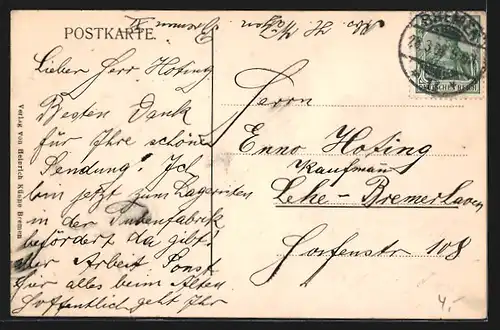 POSTKARTE.
Bremen
BREMEN
DEUTSCHES REICH
Lieber Herr Hoting.
Besten Dank
für Ihre schöne
Sendung! Ich
bin jetzt zum Lageristen
in der Tubenfabrik
befördert da gibts
aller Arbeit Sonst
hier alles beim Alten
Hoffentlich geht Ihr
Herrn
Enno Hoting
Kaufmann
Lehe-Bremerhaven
Hafenstr 108
Verlag von Heinrich Künne Bremen
4,-